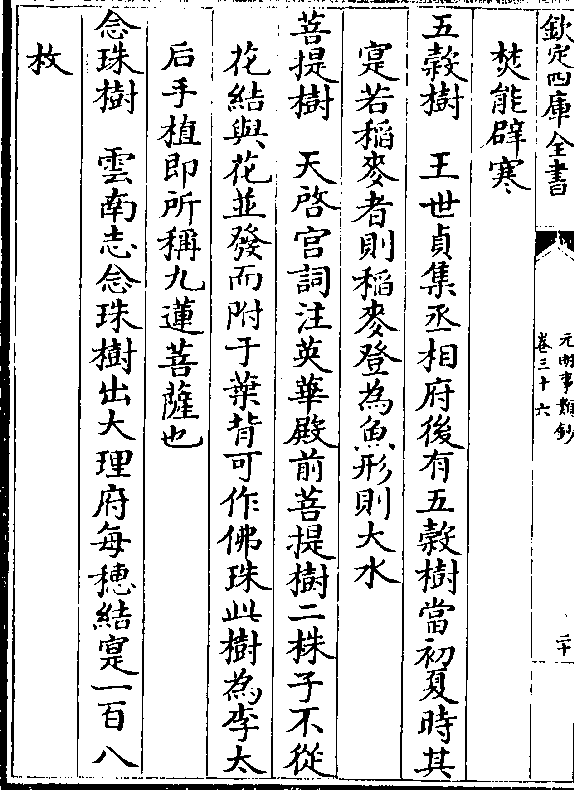 欽定四庫全書
元明事類鈔
卷三十六
二十
焚能辟寒
五榖樹　王世貞集丞相府後有五榖樹當初夏時其
寔若稻麥者則稻麥登為魚形則大水
菩提樹　天啓宫詞注英華殿前菩提樹二株子不從
花結與花並發而附于葉背可作佛珠此樹為李太
后手植即所稱九蓮菩薩也
念珠樹　雲南志念珠樹出大理府每穗結寔一百八
枚